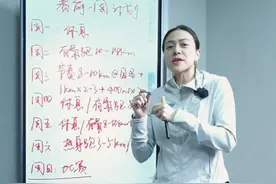 赛前一周计划
周一：休息
周二：有氧跑10-
周三：节奏8-10km@
1km×2-3+400m×
周四：休息/有氧跑
周五：休息/
周六：热身跑3-5km
周日：比赛